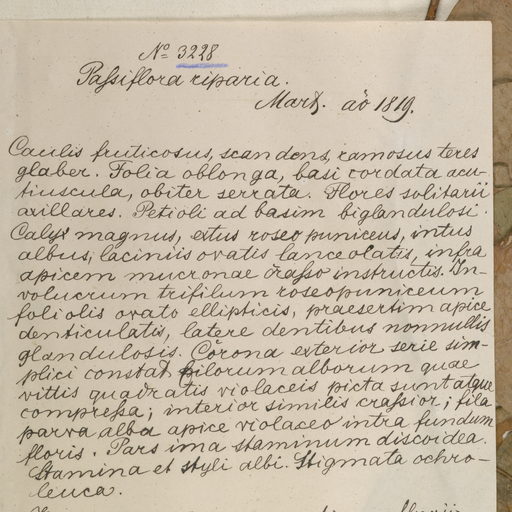 No 3228
Passiflora riparia.
Mart. aō 1819.
Caulis fruticosus, scandens, ramosus teres
glaber. Folia oblonga, basi cordata acu-
tiuscula, obiter serrata. Flores solitarii
axillares. Petioli ad basim biglandulosi.
Calyx magnus, extus roseo puniceus, intus
albus, laciniis ovatis lanceolatis, infra
apicem mucronae crasso instructis. In-
volucrum trifilum roseopuniceum
foliolis ovato ellipticis, praesertim apice
denticulatis, latere dentibus nonnullis
glandulosis. Corona exterior serie sim-
plici constat pilorum alborum quae
vittis quadratis violaceis picta sunt atque
compressa; interior similis crassior; fila
parva alba apice violaceo intra fundum
floris. Pars ima staminum discoidea.
Stamina et styli albi. Stigmata ochro-
leuca.